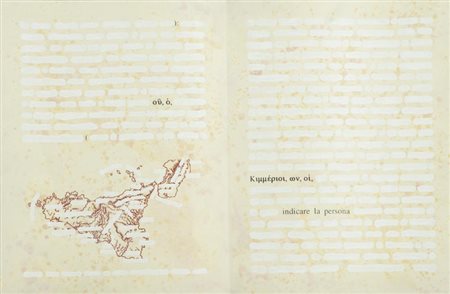 ):
οῦ, ὁ,
(
Κιμμέριοι, ων, οἱ,
indicare la persona